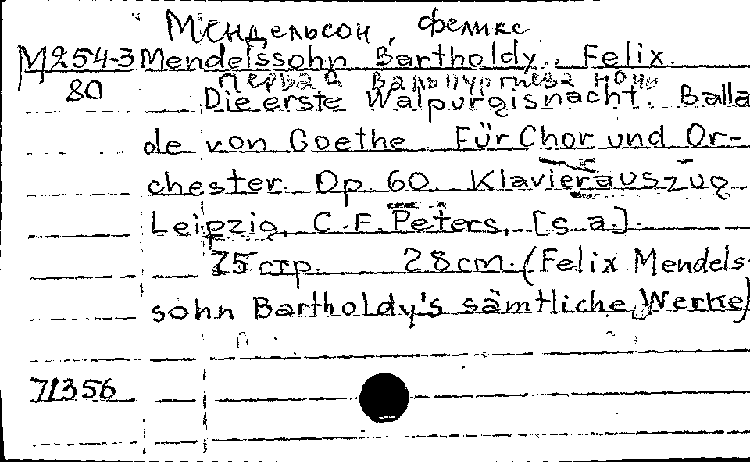 Мендельсон, Феликс
M254-3 Mendelssohn Bartholdy, Felix.
Первая Вальпургиева ночь
80 Die erste Walpurgisnacht. Balla
de von Goethe Für Chor und Or-
chester. Op. 60. Klavierauszug
Leipzig, C. F. Peters, [s. a.].
75 стр. 28 cm. (Felix Mendels-
sohn Bartholdy's sämtliche Werke)
71356